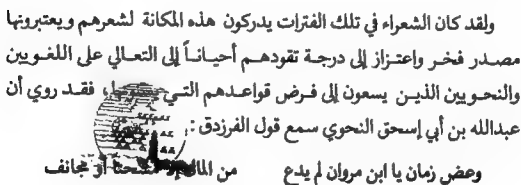 ولقد كان الشعراء في تلك الفترات يدركون هذه المكانة لشعرهم ويعتبرونها
مصدر فخر واعتزاز إلى درجة تقودهم أحياناً إلى التعالي على اللغويين
والنحويين الذين يسعون إلى فرض قواعدهم التي فقد روي أن
عبدالله بن أبي إسحق النحوي سمع قول الفرزدق :
وعض زمان يا ابن مروان لم يدع من المال أو مجانف